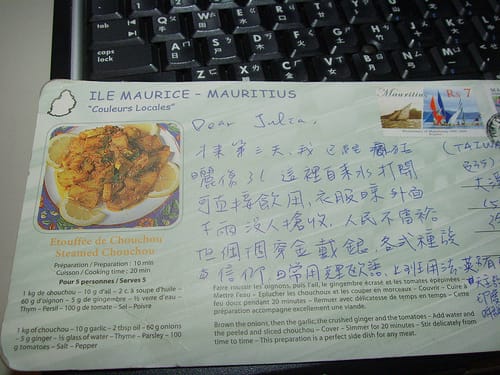 tab
caps lock
Q
W
E
R
T
Y
U
I
O
A
S
D
F
G
H
J
K
L
Z
X
C
V
B
N
M
ILE MAURICE - MAURITIUS
"Couleurs Locales"
Mauritius
Rs 7
Dear Julia,
來第三天,我已經瘋狂
(TAIWAN
曬傷3! 這裡自來水打開
可直接飲用,衣服晾外面
下雨沒人搶收,人民不富裕
但個個穿金戴銀,各式種族
與信仰,日常用
Etouffée de Chouchou
Steamed Chouchou
Préparation / Preparation : 10 min
Cuisson / Cooking time : 20 min
Pour 5 personnes / Serves 5
1 kg de chouchou – 10 g d'ail – 2 c à soupe d'huile –
60 g d'oignon – 5 g de gingembre – ½ verre d'eau –
Thym – Persil – 100 g de tomate – Sel – Poivre
1 kg of chouchou – 10 g garlic – 2 tbsp oil – 60 g onions
– 5 g ginger – ½ glass of water – Thyme – Parsley – 100
g tomatoes – Salt – Pepper
Faire roussir les oignons, puis l'ail, le gingembre écrasé et les tomates épépinées –
Mettre l'eau – Eplucher les chouchoux et les couper en morceaux – Couvrir – Cuire à
feu doux pendant 20 minutes – Remuer avec délicatesse de temps en temps – Cette
préparation accompagne excellement une viande.
Brown the onions, then the garlic, the crushed ginger and the tomatoes – Add water and
the peeled and sliced chouchou – Cover – Simmer for 20 minutes – Stir delicately from
time to time – This preparation is a perfect side dish for any meat.